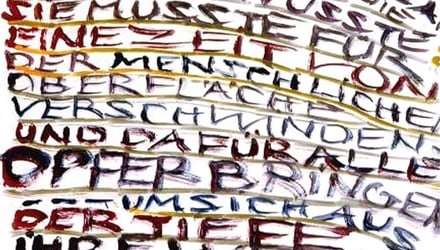 SIE MUSSTE FÜR
EINE ZEIT VON
DER MENSCHLICHEN
OBERFLÄCHE
VERSCHWINDEN
UND DAFÜR ALLE
OPFER BRINGEN
UM SICH AUS
DER TIEFE
IHRE